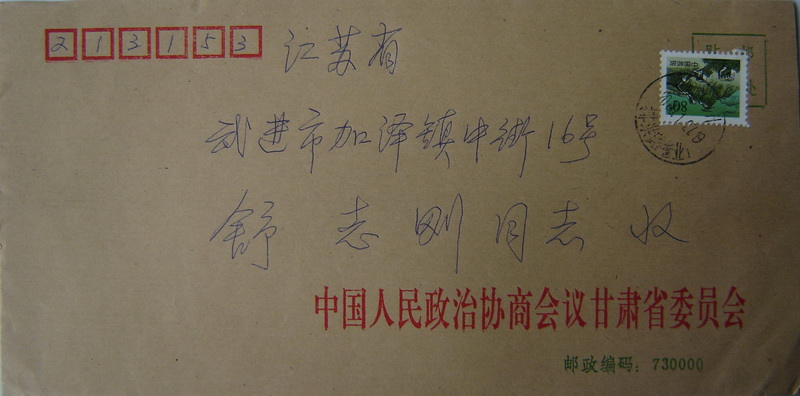 213153
江苏省
武进市加泽镇中街16号
舒志刚同志收
中国邮政
80分
中国人民政治协商会议甘肃省委员会
邮政编码：730000